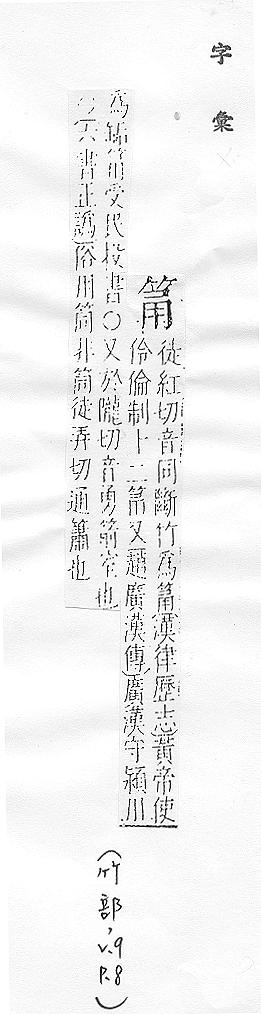 字彙
筩
徒紅切音同斷竹爲筩漢律歷志黃帝使
伶倫制十二筩又趙廣漢傳廣漢守潁川
爲缿筩受民投書○又於隴切音勇箭室也
六書正譌俗用筒非筒徒弄切通簫也
(竹部, v.9
P.8)